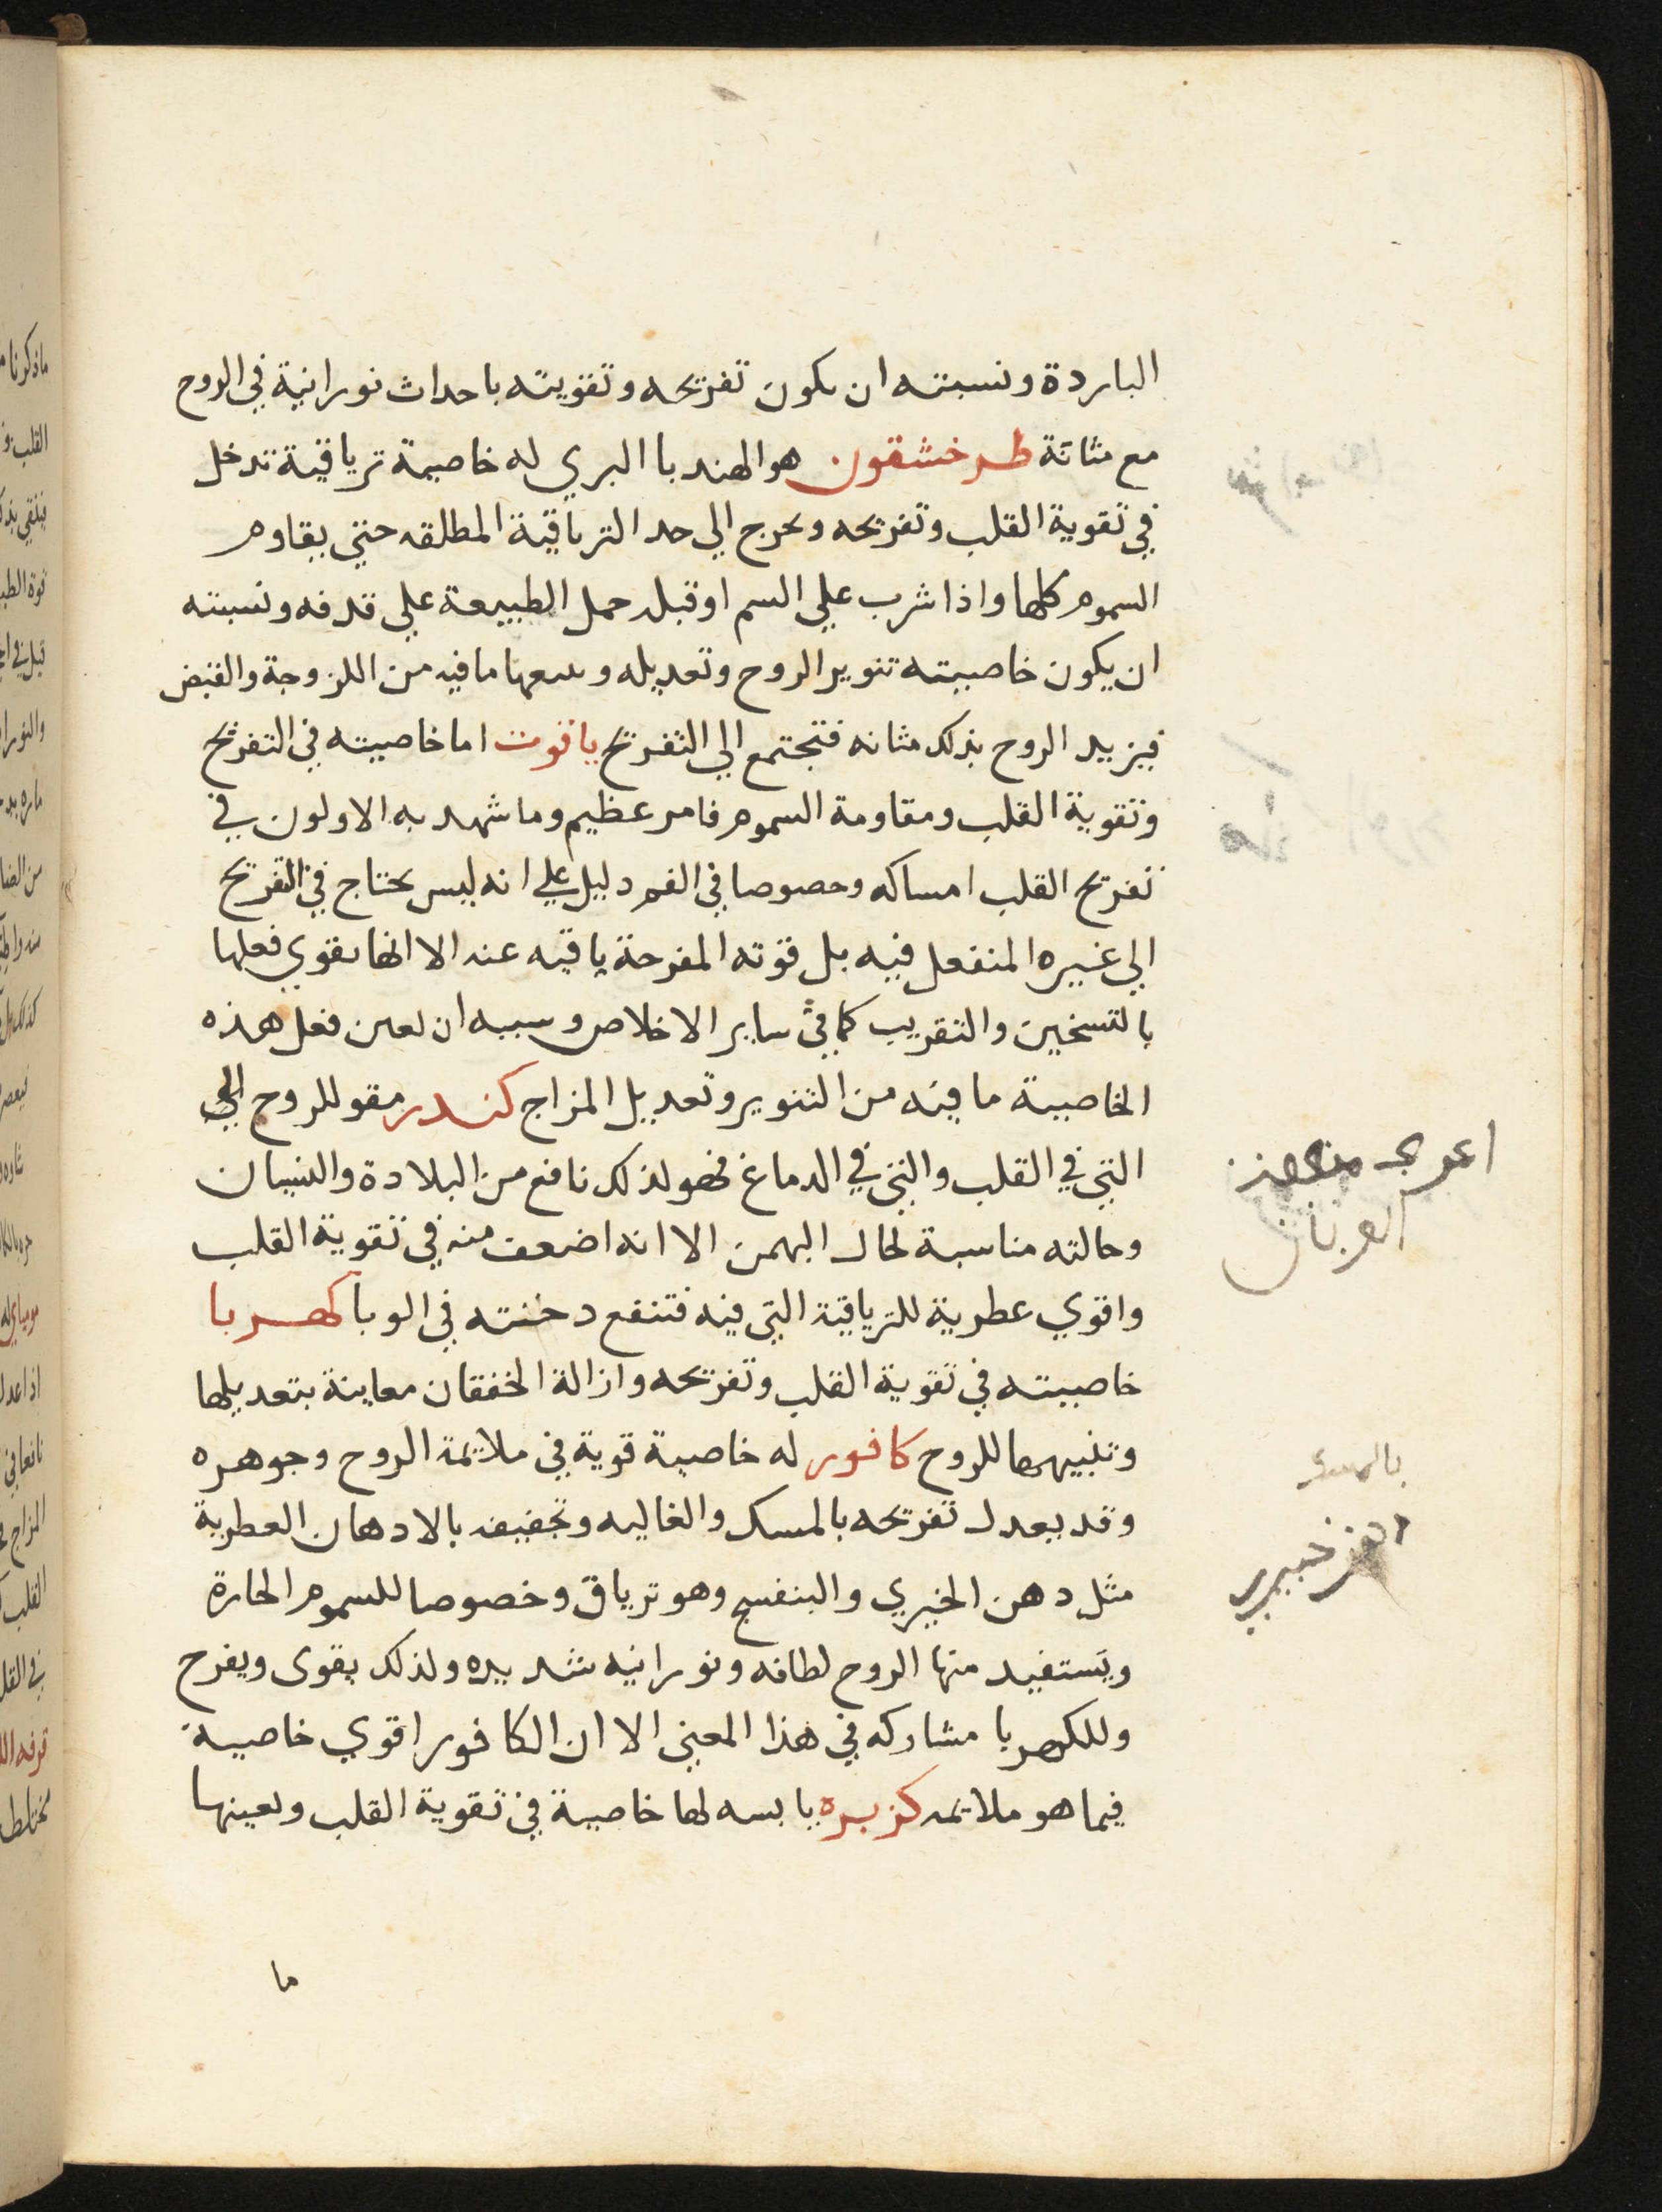 الباردة ونسبته ان يكون تفريحه وتقويته باحداث نورانية في الروح
مع متانة طرخشقون هو الهندبا البري له خاصية ترياقية تدخل
في تقوية القلب وتفريحه ويخرج الي حد الترياقية المطلقه حتي يقاوم
السموم كلها واذا شرب علي السم او قبله حمل الطبيعة علي قدفه ونسبته
ان يكون خاصيته تنوير الروح وتعديله ومعها ما فيه من اللزوجة والقبض
فيزيد الروح بذلك متانه فتجتمع الي التفريح ياقوت اما خاصيته في التفريح
وتقوية القلب ومقاومة السموم فامر عظيم وما شهد به الاولون في
تفريح القلب امساكه وخصوصا في الفم دليل علي انه ليس يحتاج في التفريح
الي غيره المنفعل فيه بل قوته المفرحة ياقيه عنه الا انها يقوي فعلها
بالتسخين والتقريب كما في ساير الاخلاص وسببه ان يعين فعل هذه
الخاصية ما فيه من التنوير وتعديل المزاج كندر مقو للروح الي
التي في القلب والتي في الدماغ فهو لذلك نافع من البلادة والنسيان
وحالته مناسبة لحال البهمن الا انه اضعف منه في تقوية القلب
واقوي عطرية للترياقية التي فيه فتنفع دخنته في الوبا كهربا
خاصيته في تقوية القلب وتفريحه وازالة الخفقان معاينة بتعديلها
وتنبيهها للروح كافور له خاصية قوية في ملايمة الروح وجوهره
وقد يعدل تفريحه بالمسك والغاليه وتجفيفه بالادهان العطرية
مثل دهن الخيري والبنفسج وهو ترياق وخصوصا للسموم الحارة
ويستفيد منها الروح لطافه ونورانيه شديده ولذلك يقوى ويفرح
وللكهربا مشاركه في هذا المعني الا ان الكافور اقوي خاصية
فيما هو ملايمه كزبره يابسه لها خاصية في تقوية القلب ويعينها
ما
بالمسك